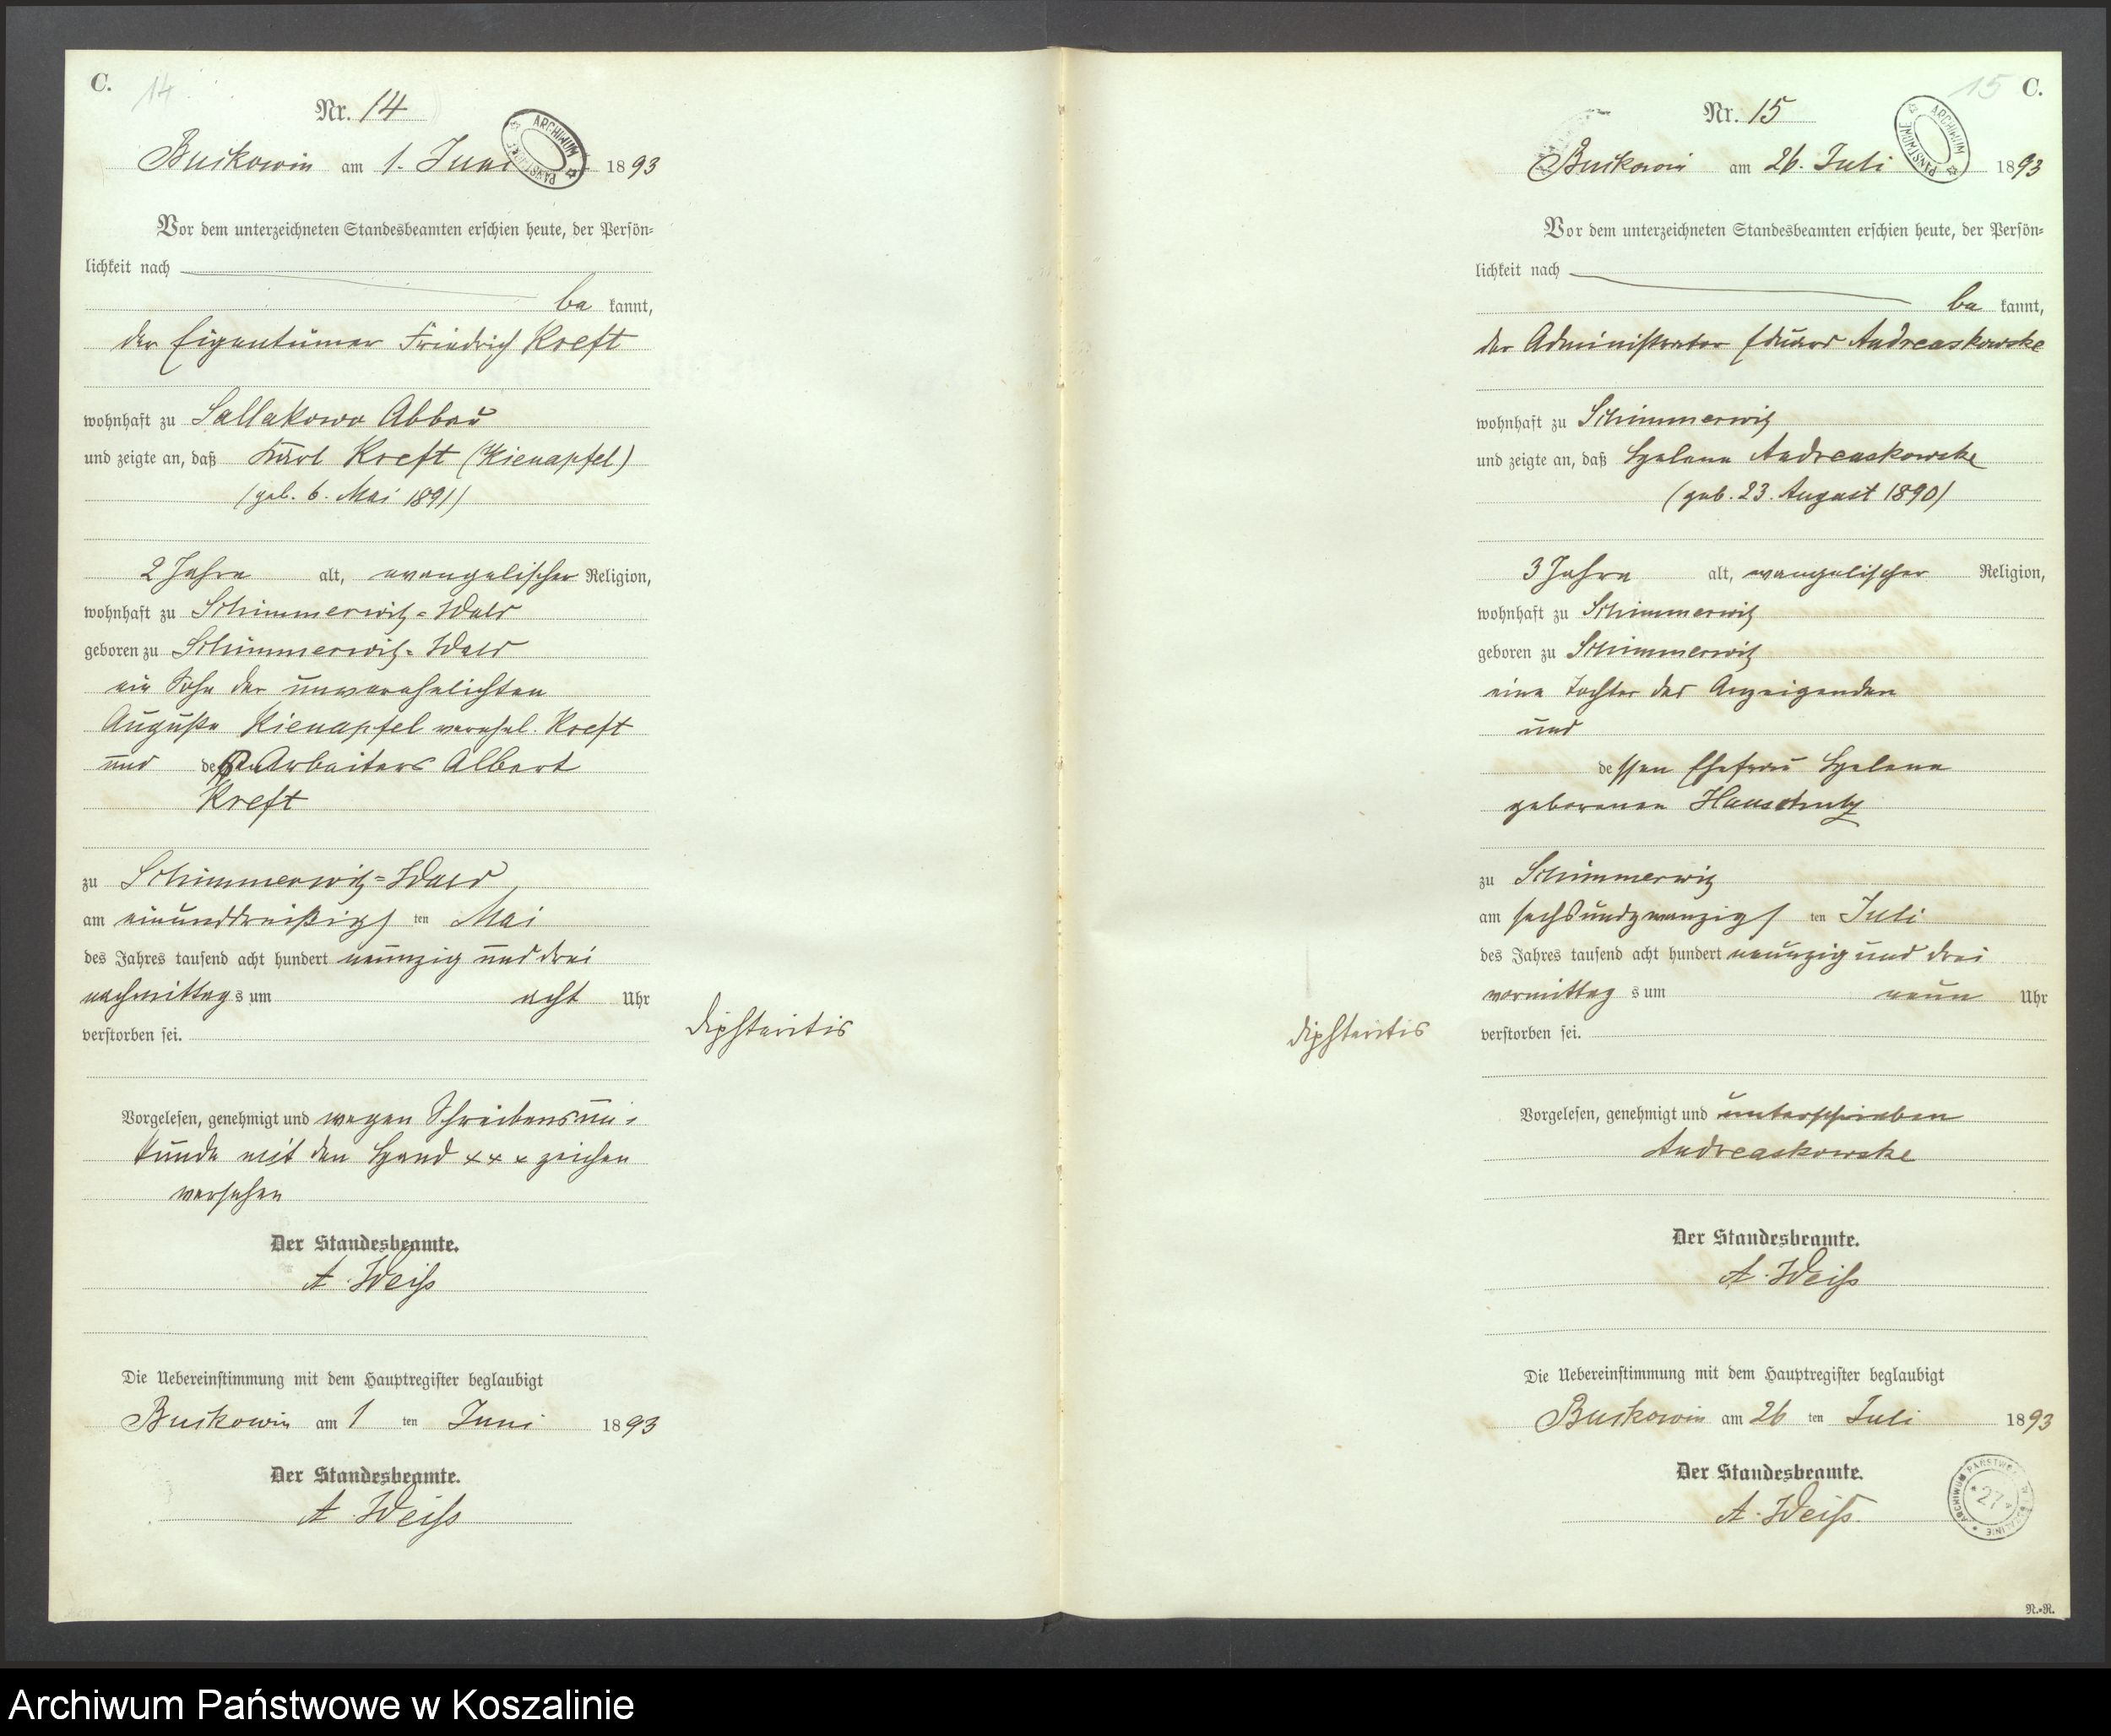 C.
14
Nr. 14
Buckowin am 1. Juni 1893
ARCHIWUM PAŃSTWOWE
Vor dem unterzeichneten Standesbeamten erschien heute, der Persön-
lichkeit nach
be kannt,
der Eigentümer Friedrich Kreft
wohnhaft zu Sallakowo Abbau
und zeigte an, daß Karl Kreft (Kienapfel)
(geb. 6. Mai 1891)
2 Jahre alt, evangelischer Religion,
wohnhaft zu Schimmerwitz-Wald
geboren zu Schimmerwitz-Wald
ein Sohn der unverehelichten
Auguste Kienapfel verehel. Kreft
und des Arbeiters Albert
Kreft
zu Schimmerwitz-Wald
am einunddreißigs ten Mai
des Jahres tausend acht hundert neunzig und drei
nachmittag s um acht Uhr
verstorben sei.
diphteritis
Vorgelesen, genehmigt und wegen Schreibensun-
kunde mit den Hand x x x zeichen
versehen
Der Standesbeamte.
A. Weiß
Die Uebereinstimmung mit dem Hauptregister beglaubigt
Buckowin am 1 ten Juni 1893
Der Standesbeamte.
A. Weiß
15 C.
Nr. 15
Buckowin am 26. Juli 1893
ARCHIWUM PAŃSTWOWE
Vor dem unterzeichneten Standesbeamten erschien heute, der Persön-
lichkeit nach
be kannt,
der Administrator Eduard Andreaskowske
wohnhaft zu Schimmerwitz
und zeigte an, daß Helene Andreaskowske
(geb. 23. August 1890)
3 Jahre alt, evangelischer Religion,
wohnhaft zu Schimmerwitz
geboren zu Schimmerwitz
eine Tochter des Anzeigenden
und
dessen Ehefrau Helene
geborenen
zu Schimmerwitz
am sechsundzwanzigs ten Juli
des Jahres tausend acht hundert neunzig und drei
vormittag s um neun Uhr
verstorben sei.
diphteritis
Vorgelesen, genehmigt und unterschrieben
Andreaskowske
Der Standesbeamte.
A. Weiß
Die Uebereinstimmung mit dem Hauptregister beglaubigt
Buckowin am 26 ten Juli 1893
Der Standesbeamte.
A. Weiß
27
N.-R.
Archiwum Państwowe w Koszalinie